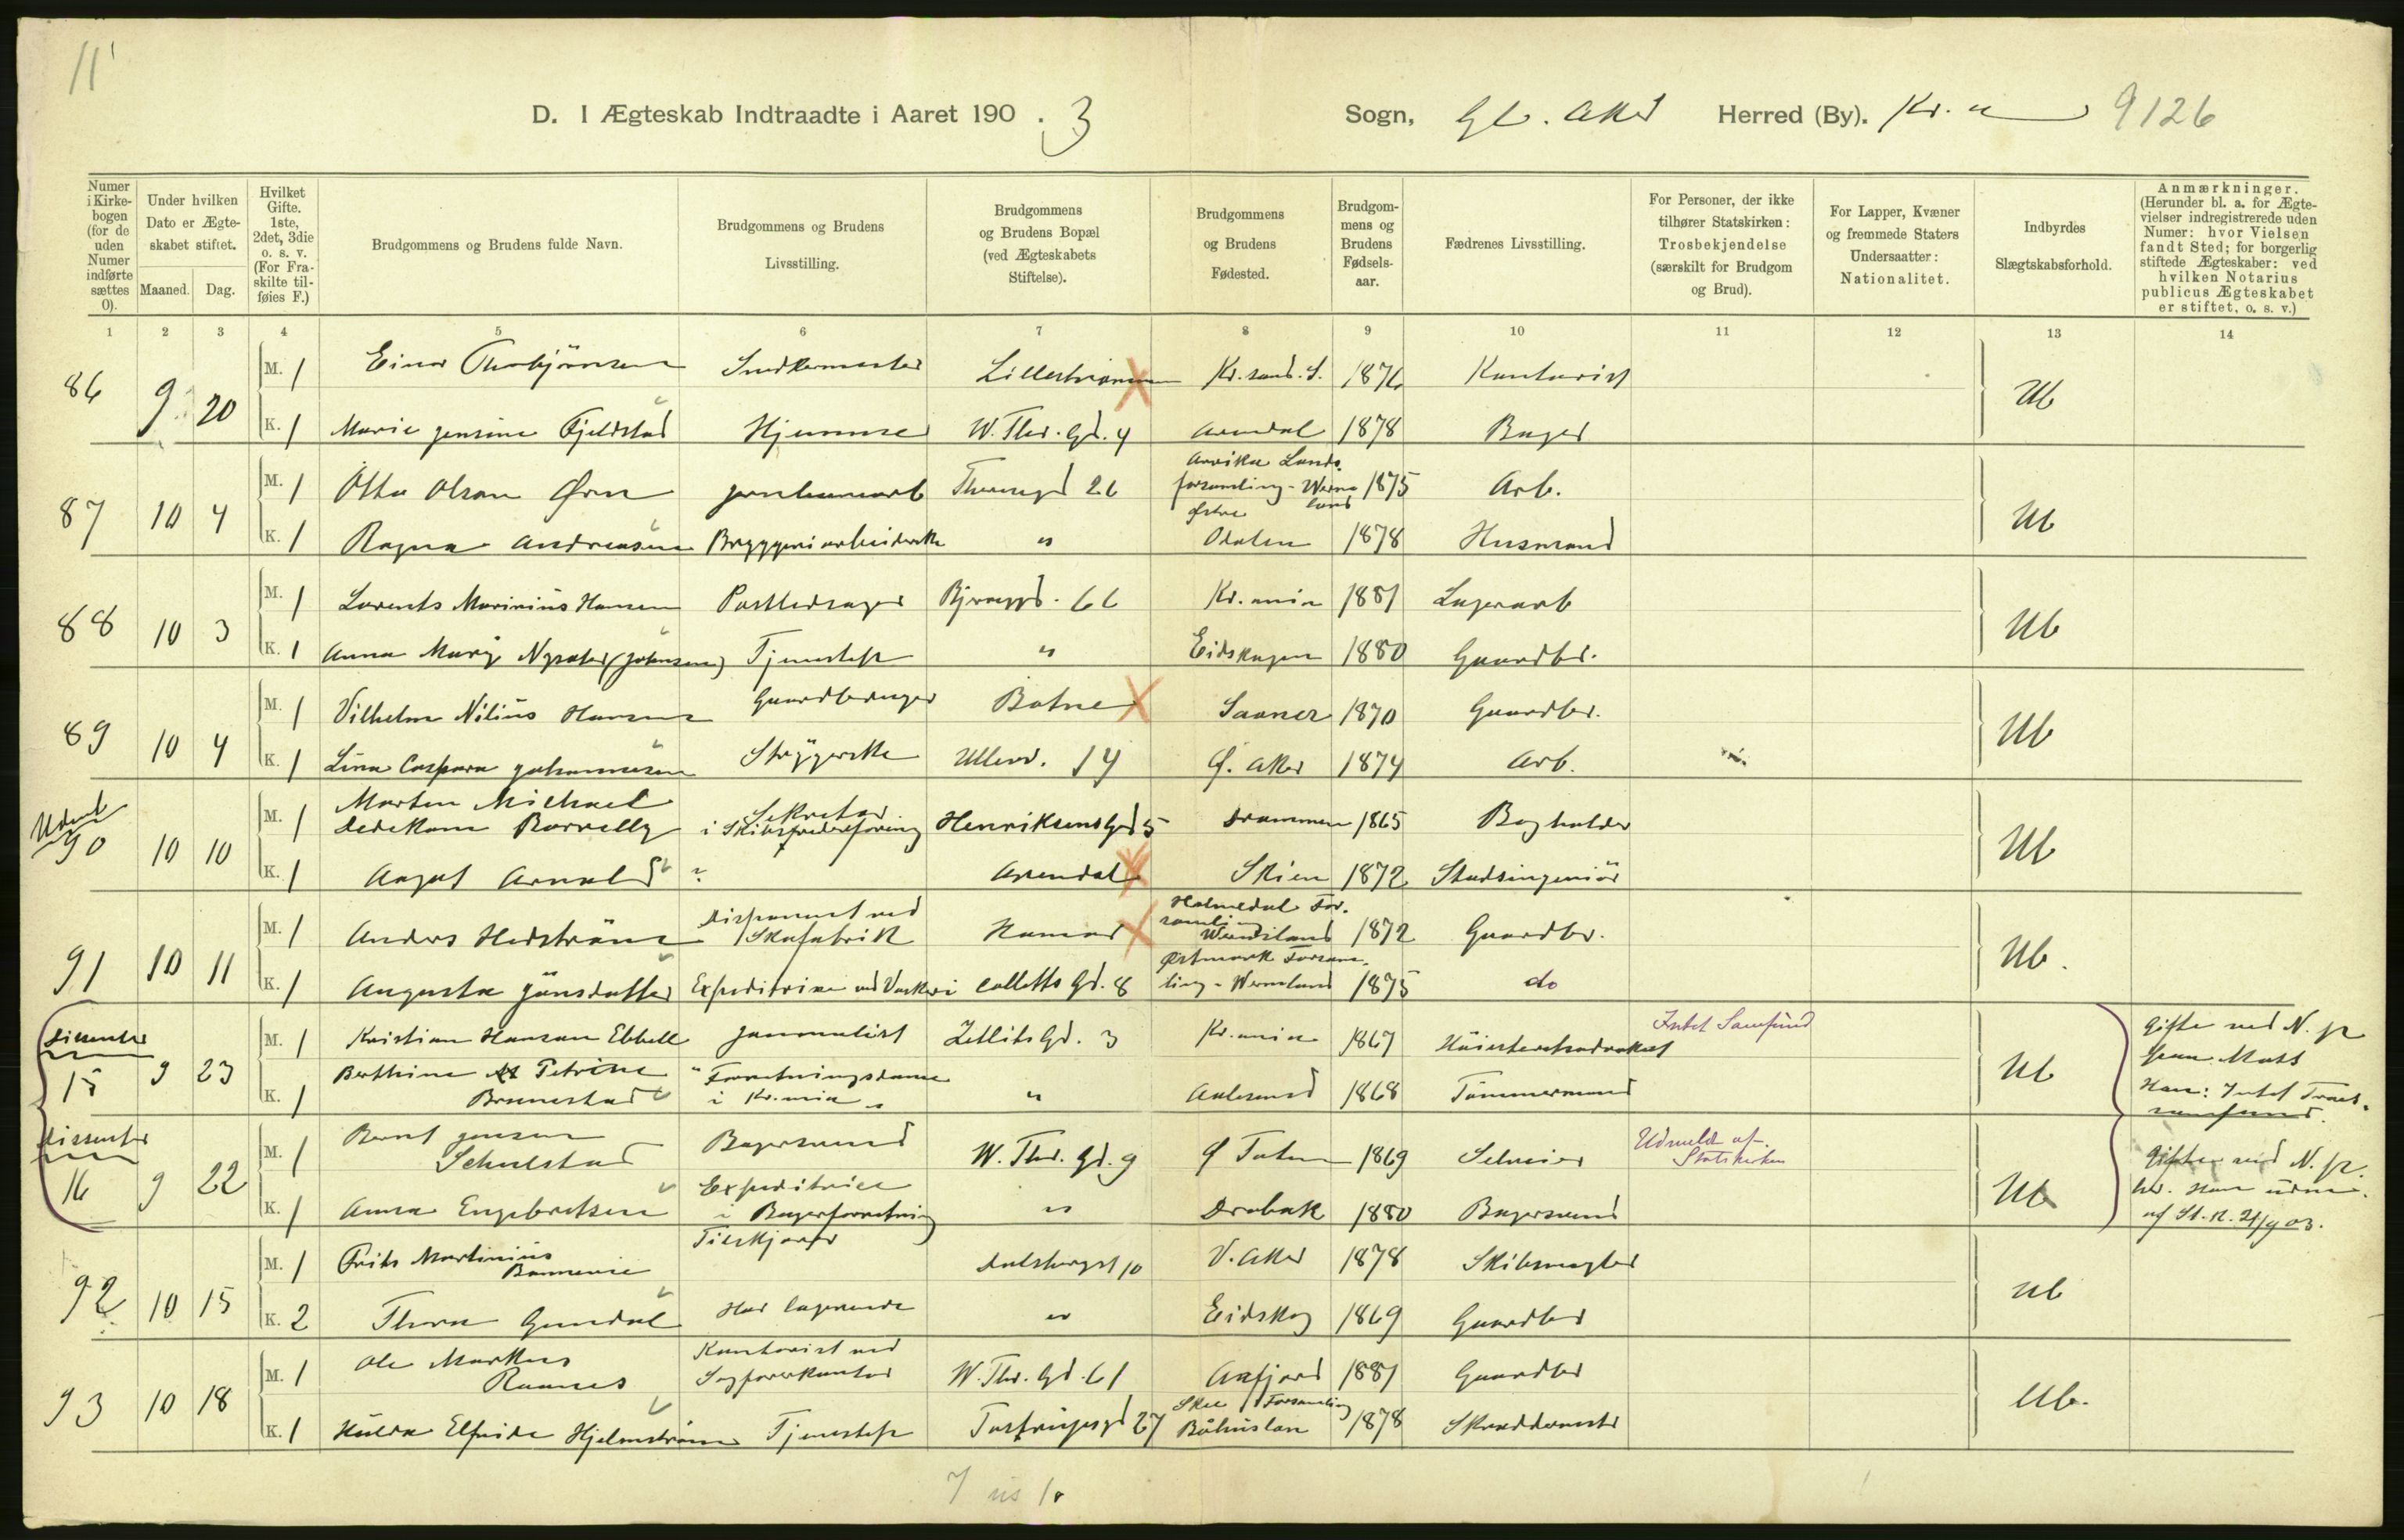 11
D. I Ægteskab Indtraadte i Aaret 190 . 3 Sogn, Gl. Aker Herred (By). Kr. a 9126
Numer i Kirkebogen (for de uden Numer indførte sættes 0).
Under hvilken Dato er Ægteskabet stiftet.
Maaned. Dag.
Hvilket Gifte. 1ste, 2det, 3die o. s. v. (For Fraskilte tilføies F.)
Brudgommens og Brudens fulde Navn.
Brudgommens og Brudens Livsstilling.
Brudgommens og Brudens Bopæl (ved Ægteskabets Stiftelse).
Brudgommens og Brudens Fødested.
Brudgommens og Brudens Fødselsaar.
Fædrenes Livsstilling.
For Personer, der ikke tilhører Statskirken: Trosbekjendelse (særskilt for Brudgom og Brud).
For Lapper, Kvæner og fremmede Staters Undersaatter: Nationalitet.
Indbyrdes Slægtskabsforhold.
Anmærkninger. (Herunder bl. a. for Ægtevielser indregistrerede uden Numer: hvor Vielsen fandt Sted; for borgerlig stiftede Ægteskaber: ved hvilken Notarius publicus Ægteskabet er stiftet, o. s. v.)
1 2 3 4 5 6 7 8 9 10 11 12 13 14
86 9 20 M. 1 Einar Thorbjörnsen Snedkermester Lillestrømmen Kr.sand. S. 1876 Kontorist Ub
K. 1 Marie Jensine Fjeldstad Hjemme W. Thr. Gd. 4 Arendal 1878 Bager
87 10 4 M. 1 Otto Olsson Ørn Jernbanearb Theresegd 26 Arvika Landsforsamling - Wermland 1875 Arb. Ub
K. 1 Ragna Andreasen Bryggeriarbeiderske " Østre Odalen 1878 Husmand
88 10 3 M. 1 Lorents Marinius Hansen Postledsager Bjerreggd. 66 Kr.ania 1881 Lagerarb Ub
K. 1 Anna Marg Nysæter (Johnsen) Tjenestepe " Eidskogen 1880 Gaardbr.
89 10 4 M. 1 Vilhelm Nilius Hansen Gaardbruger Botne Saaner 1870 Gaardbr. Ub
K. 1 Lina Caspara Johannesen Strygerske Ullevv. 14 Ø. Aker 1874 Arb.
90 10 10 M. 1 Morten Michael Sekretær
i Skibsrederforening Henriksens Gd 5 Drammen 1865 Bogholder Ub
K. 1 Aagot Arnold ? Arendal Skien 1872 Stadsingeniör
91 10 11 M. 1 Anders Hedström Disponent ved Skofabrik Hamar Holmedal Forsamling Wermland 1872 Gaardbr. Ub.
K. 1 Augusta Jönsdatter Expeditrice ved Vaskeri Colletts Gd. 8 Østmark Forsamling - Wermland 1875 do
Dissenter 15 9 23 M. 1 Kristian Hansson Ebbell Journalist Zetlitz Gd. 3 Kr.ania 1867 Höiesteretsadvokat Intet Samfund Ub Gifte ved N. p
K. 1 Berthine Petrine Brunestad "Forretningsdame i Kr.ania" " Aalesund 1868 Tömmermand Han: Intet Tros-
samfund.
Dissenter 16 9 22 M. 1 Bernt Jensen Schulstad Bagersvend W. Thr. Gd. 9 Ø Toten 1869 Selveier Udmeldt af Statskirken Ub Gifte ved N. p.
K. 1 Anna Engebretsen Expeditrice i Bagerforretning " Drøbak 1880 Bagersvend her. Han udm.
af St. K. 21/9 03.
92 10 15 M. 1 Frits Martinius Bonnevie Tilskjærer Dalsbergst 10 V. Aker 1878 Skibsmægler Ub
K. 2 Thora Gundal Har logerende " Eidskog 1869 Gaardbr
93 10 18 M. 1 Ole Markus Raanes Kontorist ved Sagførerkontor W. Thr. Gd. 61 Aafjord 1881 Gaardbr Ub.
K. 1 Hulda Elfrida Hjelmström Tjenestepe Toftesgd 27 Skee Forsamling Båhuslän 1878 Skræddermester
7